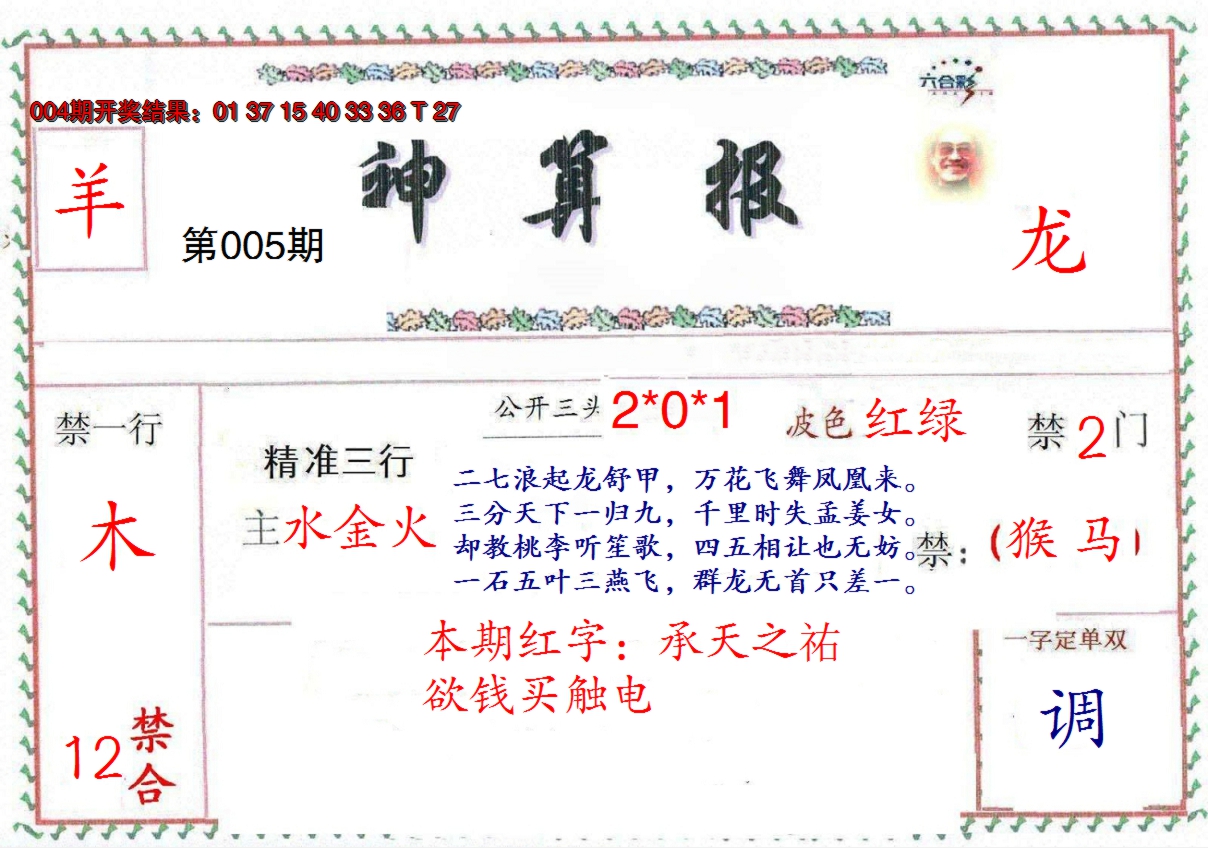 六合彩
004期开奖结果：01 37 15 40 33 36 T 27
神算报
羊
第005期
龙
禁一行
木
12禁合
精准三行
主水金火
公开三头 2*0*1
波色红绿
禁2门
二七浪起龙舒甲，万花飞舞凤凰来。
三分天下一归九，千里时失孟姜女。
却教桃李听笙歌，四五相让也无妨。
一石五叶三燕飞，群龙无首只差一。
禁：(猴 马)
本期红字：承天之祐
欲钱买触电
一字定单双
调